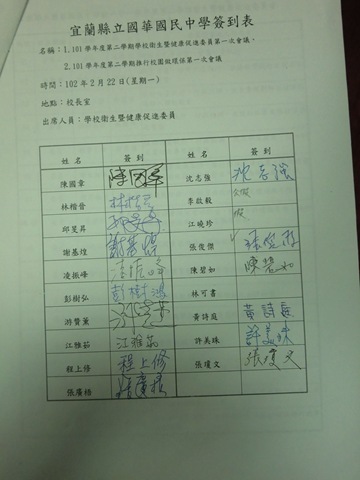 宜蘭縣立國華國民中學簽到表
名稱：1.101學年度第二學期學校衛生暨健康促進委員第一次會議。
2.101學年度第二學期推行校園做環保第一次會議
時間：102年2月22日(星期一)
地點：校長室
出席人員：學校衛生暨健康促進委員
姓名 簽到 姓名 簽到
陳國章 陳國章 沈志強 沈志強
林楷晉 李啟毅 公假
邱旻昇 江曉珍 假
謝基煌 謝基煌 張俊傑 張俊傑
凌振峰 凌振峰 陳碧如 陳碧如
彭樹弘 林可書
游贊薰 黃詩庭 黃詩庭
江雅茹 江雅茹 許美珠 許美珠
程上修 程上修 張瓊文 張瓊文
張廣梧